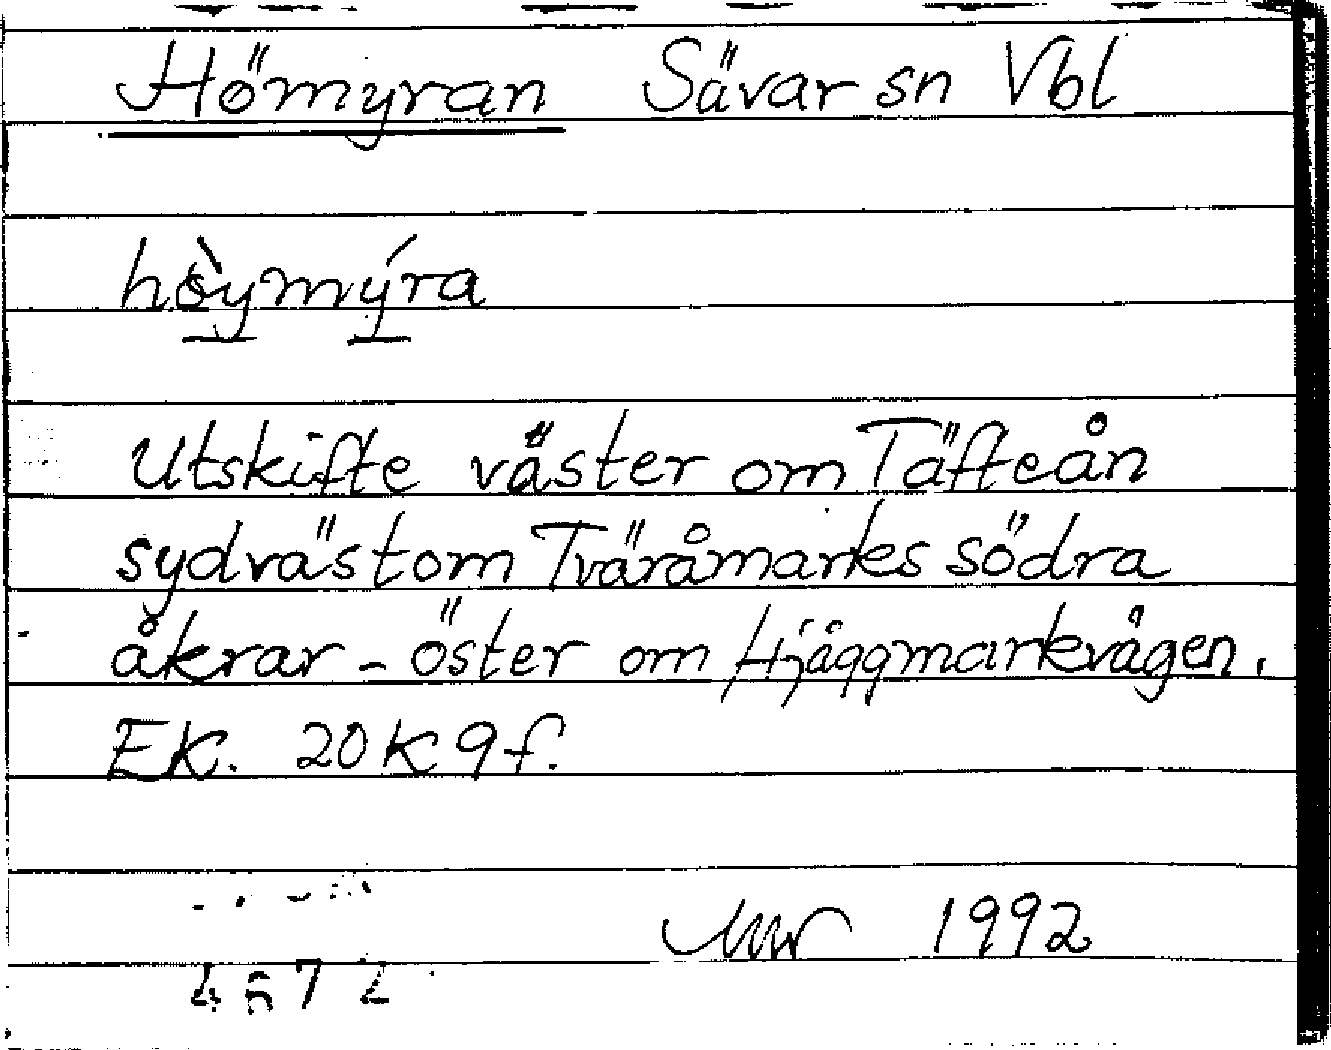 Hömyran Sävar sn Vbl
hòymýra
Utskifte väster om Täfteån
sydväst om Tväråmarks södra
åkrar - öster om Hjåggmarkvägen.
EK. 20K 9f.
1992